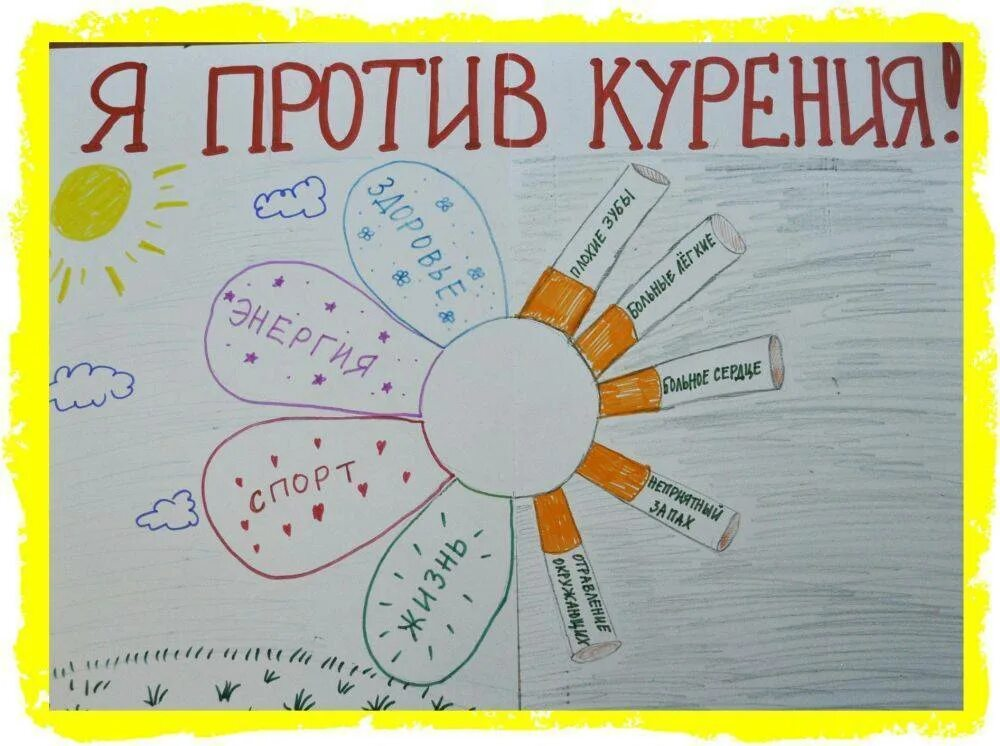 Я ПРОТИВ КУРЕНИЯ!
ЗДОРОВЬЕ
ЭНЕРГИЯ
СПОРТ
ЖИЗНЬ
ПЛОХИЕ ЗУБЫ
БОЛЬНЫЕ ЛЁГКИЕ
БОЛЬНОЕ СЕРДЦЕ
НЕПРИЯТНЫЙ
ЗАПАХ
ОТРАВЛЕНИЕ
ОКРУЖАЮЩИХ